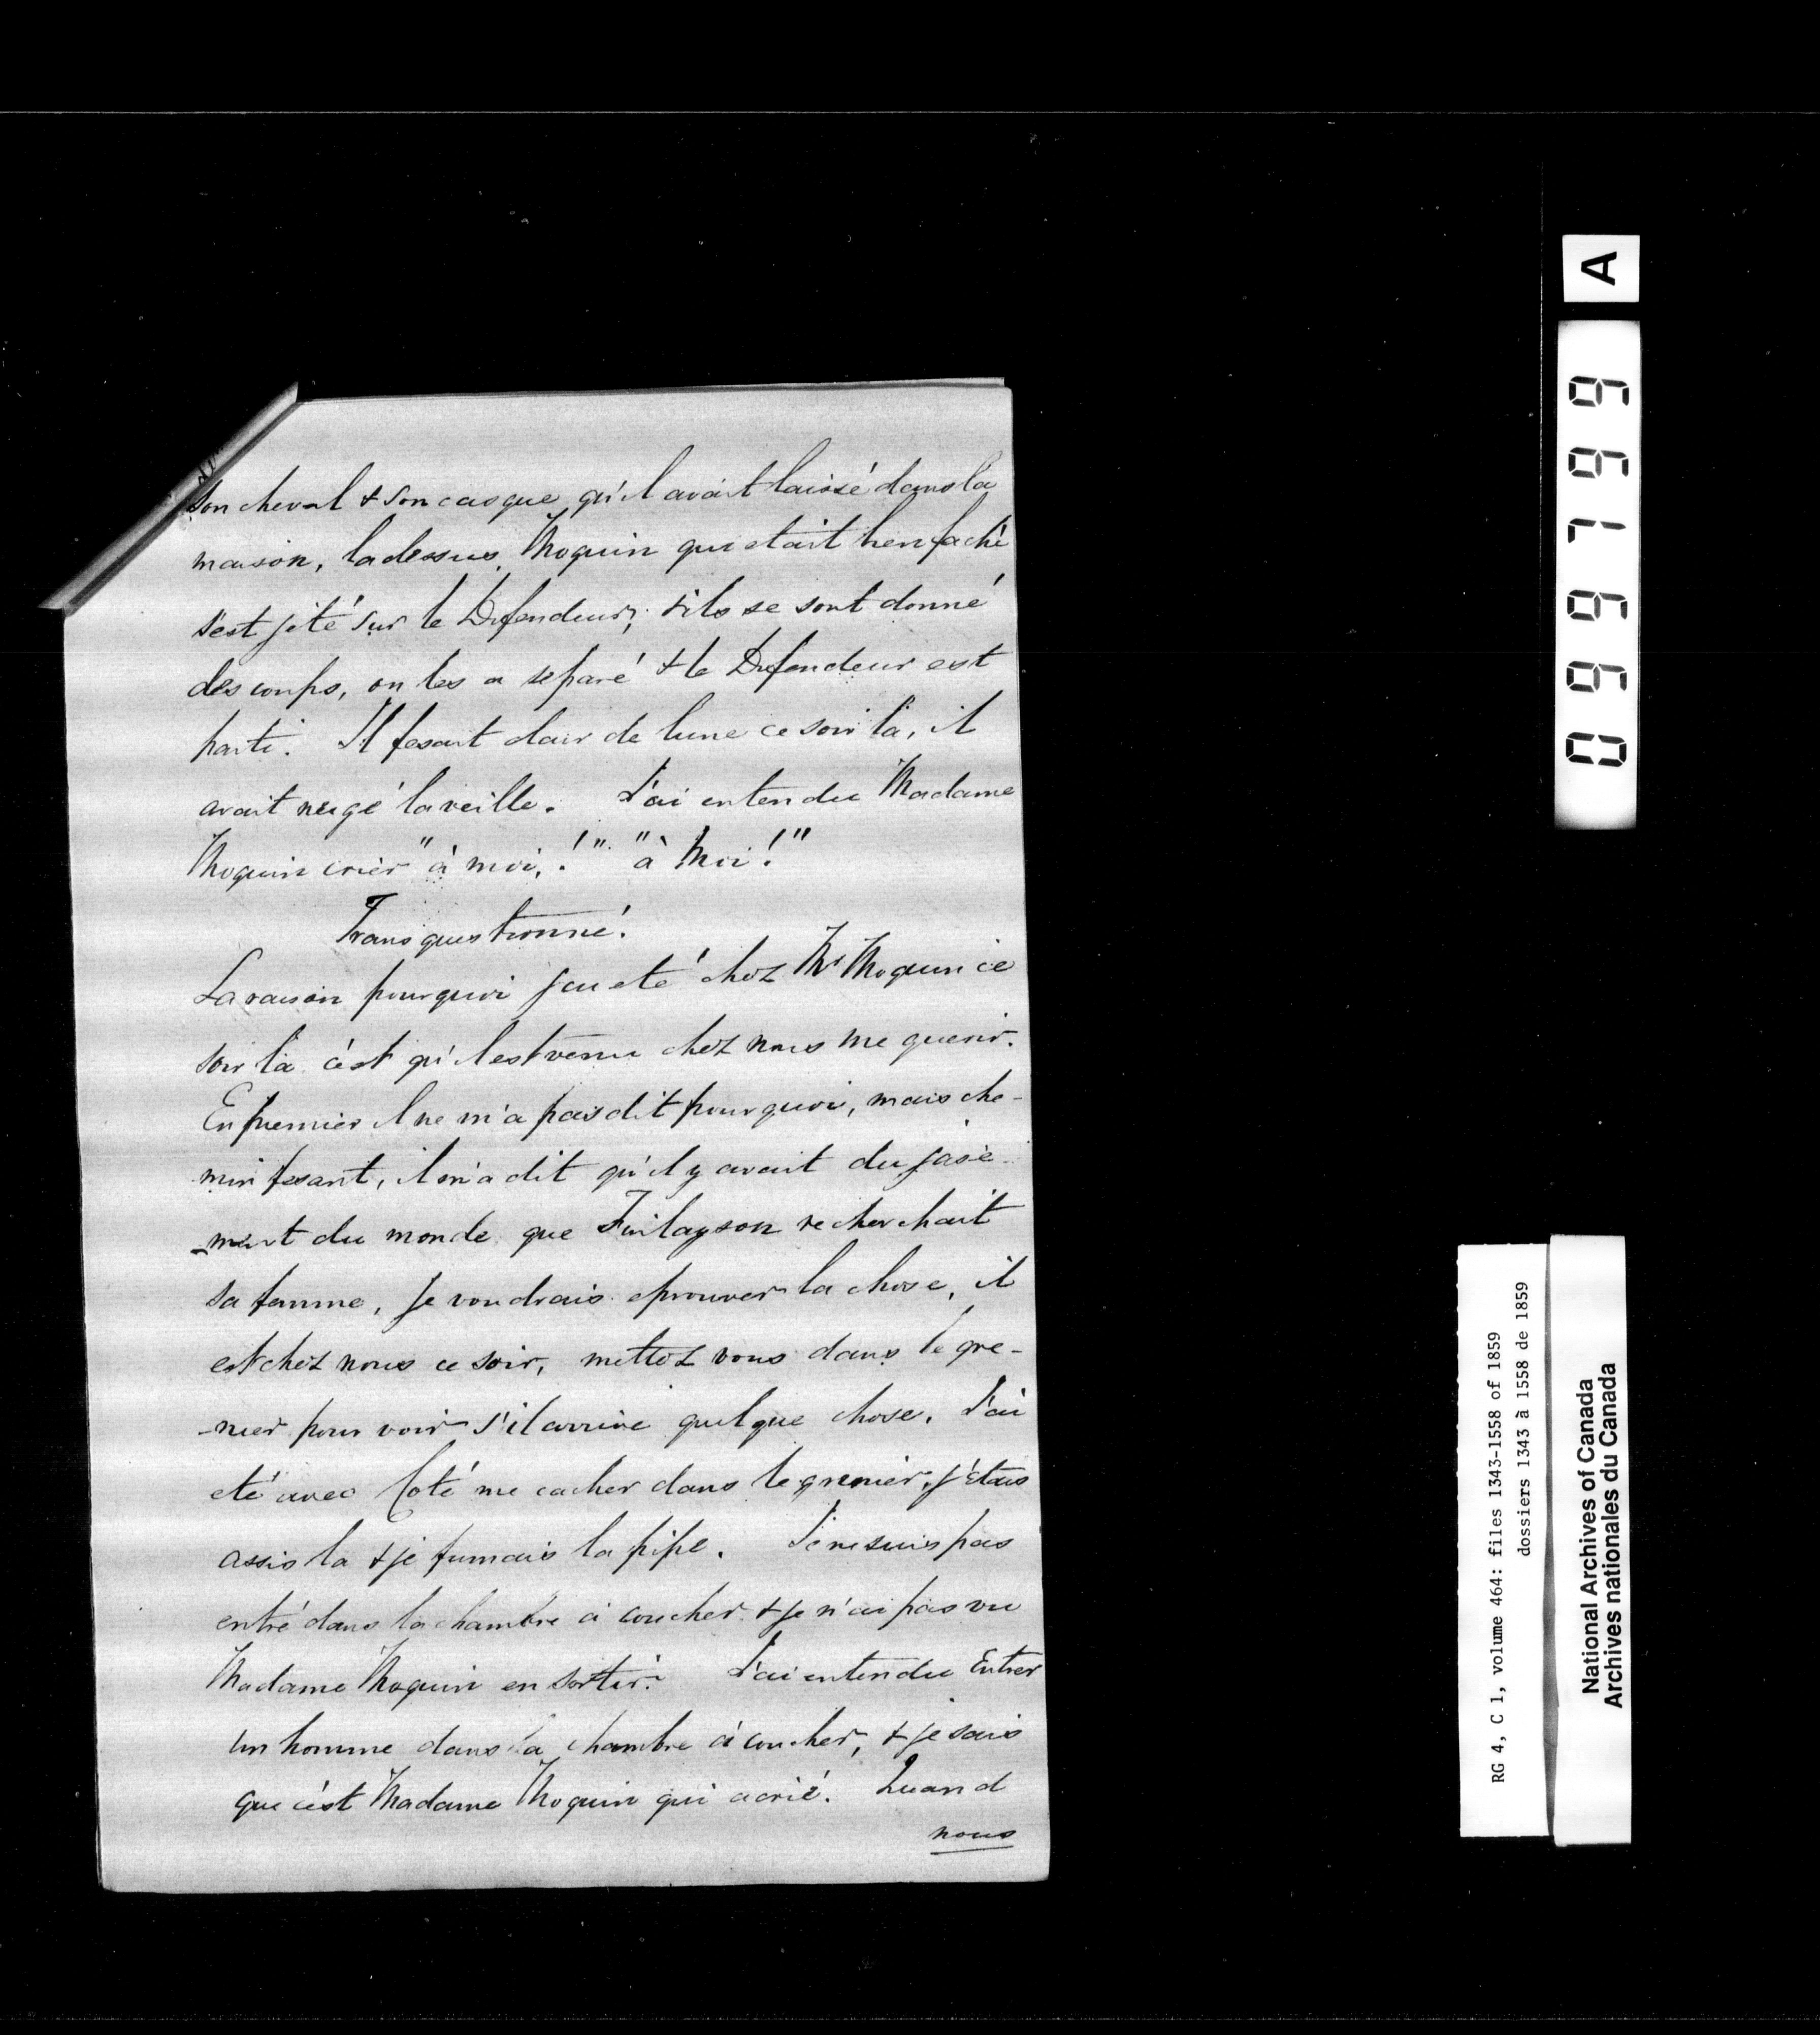 son cheval & son casque qu'il avait laissé dans la
maison, la dessus, Moquin qui etait bien faché
s'est jété sur le Défendeur; & ils se sont donné
des coups, on les a separé & le Défendeur est
parti. Il fesait clair de lune ce soir là, il
avait neigé la veille. J'ai entendu Madame
Moquin crier "à moi,!" "à Moi!"
Transquestionné.
La raison pourquoi j'ai eté chez Mr Moquin ce
soir là c'est qu'il est venu chez nous me querir.
En premier il ne m'a pas dit pourquoi, mais che-
min fesant, il m'a dit qu'il y avait du jase-
-ment du monde que Finlayson recherchait
sa femme, je voudrais eprouver la chose, il
est chez nous ce soir, mettez vous dans le gre-
-nier pour voir s'il arrive quelque chose. J'ai
eté avec Coté me cacher dans le grenier, j'etais
assis la & je fumais la pipe. Je ne suis pas
entré dans la chambre à coucher & je n'ai pas vu
Madame Moquin en sortir. J'ai entendu Entrer
un homme dans la chambre à coucher, & je sais
que c'est Madame Moquin qui a crié. Quand
nous
A
099799
RG 4, C 1, volume 464: files 1343-1558 of 1859
dossiers 1343 à 1558 de 1859
National Archives of Canada
Archives nationales du Canada